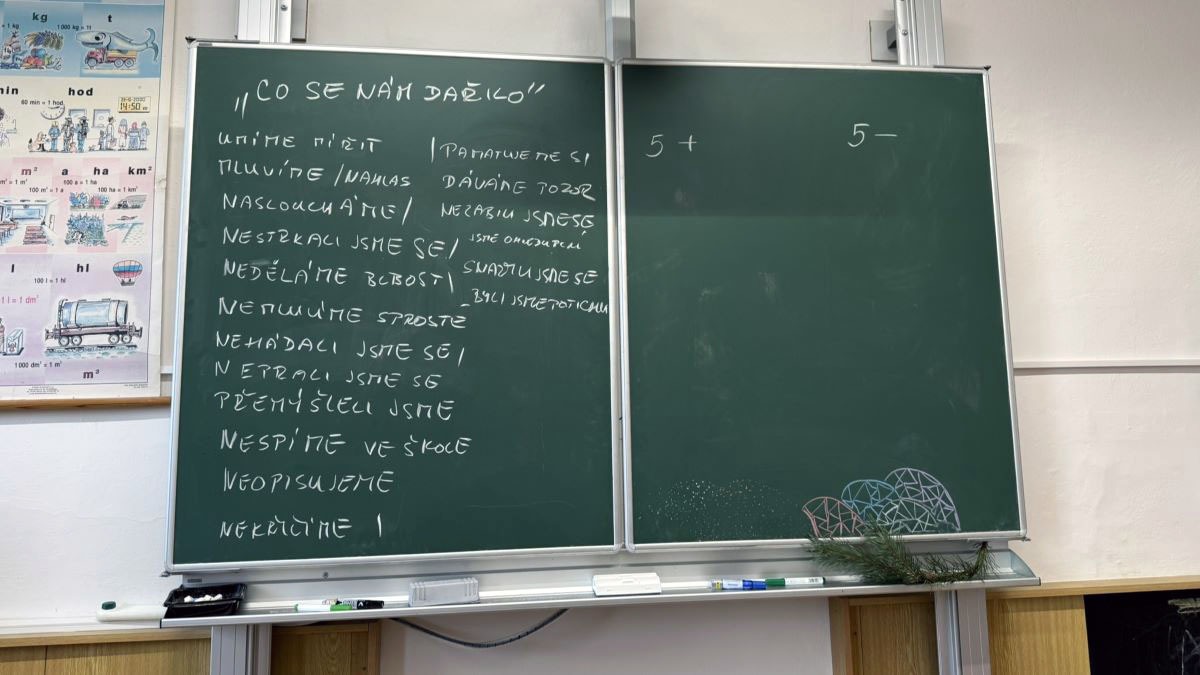 kg
t
1 kg
1 000 kg = 1 t
min
hod
60 min = 1 hod
14:50
m²
a
ha
km²
100 m² = 1 a
100 a = 1 ha
100 ha = 1 km²
l
hl
100 l = 1 hl
1 l = 1 dm³
1 000 dm³ = 1 m³
m³
„CO SE NÁM DAŘILO"
UMÍME MÍŘIT
MLUVÍME / NAHLAS
NASLOUCHÁME /
NESTRKALI JSME SE /
NEDĚLÁME BLBOSTI
NEMLUVÍME SPROSTE
NEHÁDALI JSME SE /
NEPRALI JSME SE
PŘEMÝŠLELI JSME
NESPÍME VE ŠKOLE
NEOPISUJEME
NEKŘIČÍME /
/ PAMATUJEME SI
DÁVÁME POZOR
NEZABILI JSME SE
JSME
SNAŽILI JSME SE
- BYLI JSME POTICHU
5 +
5 –